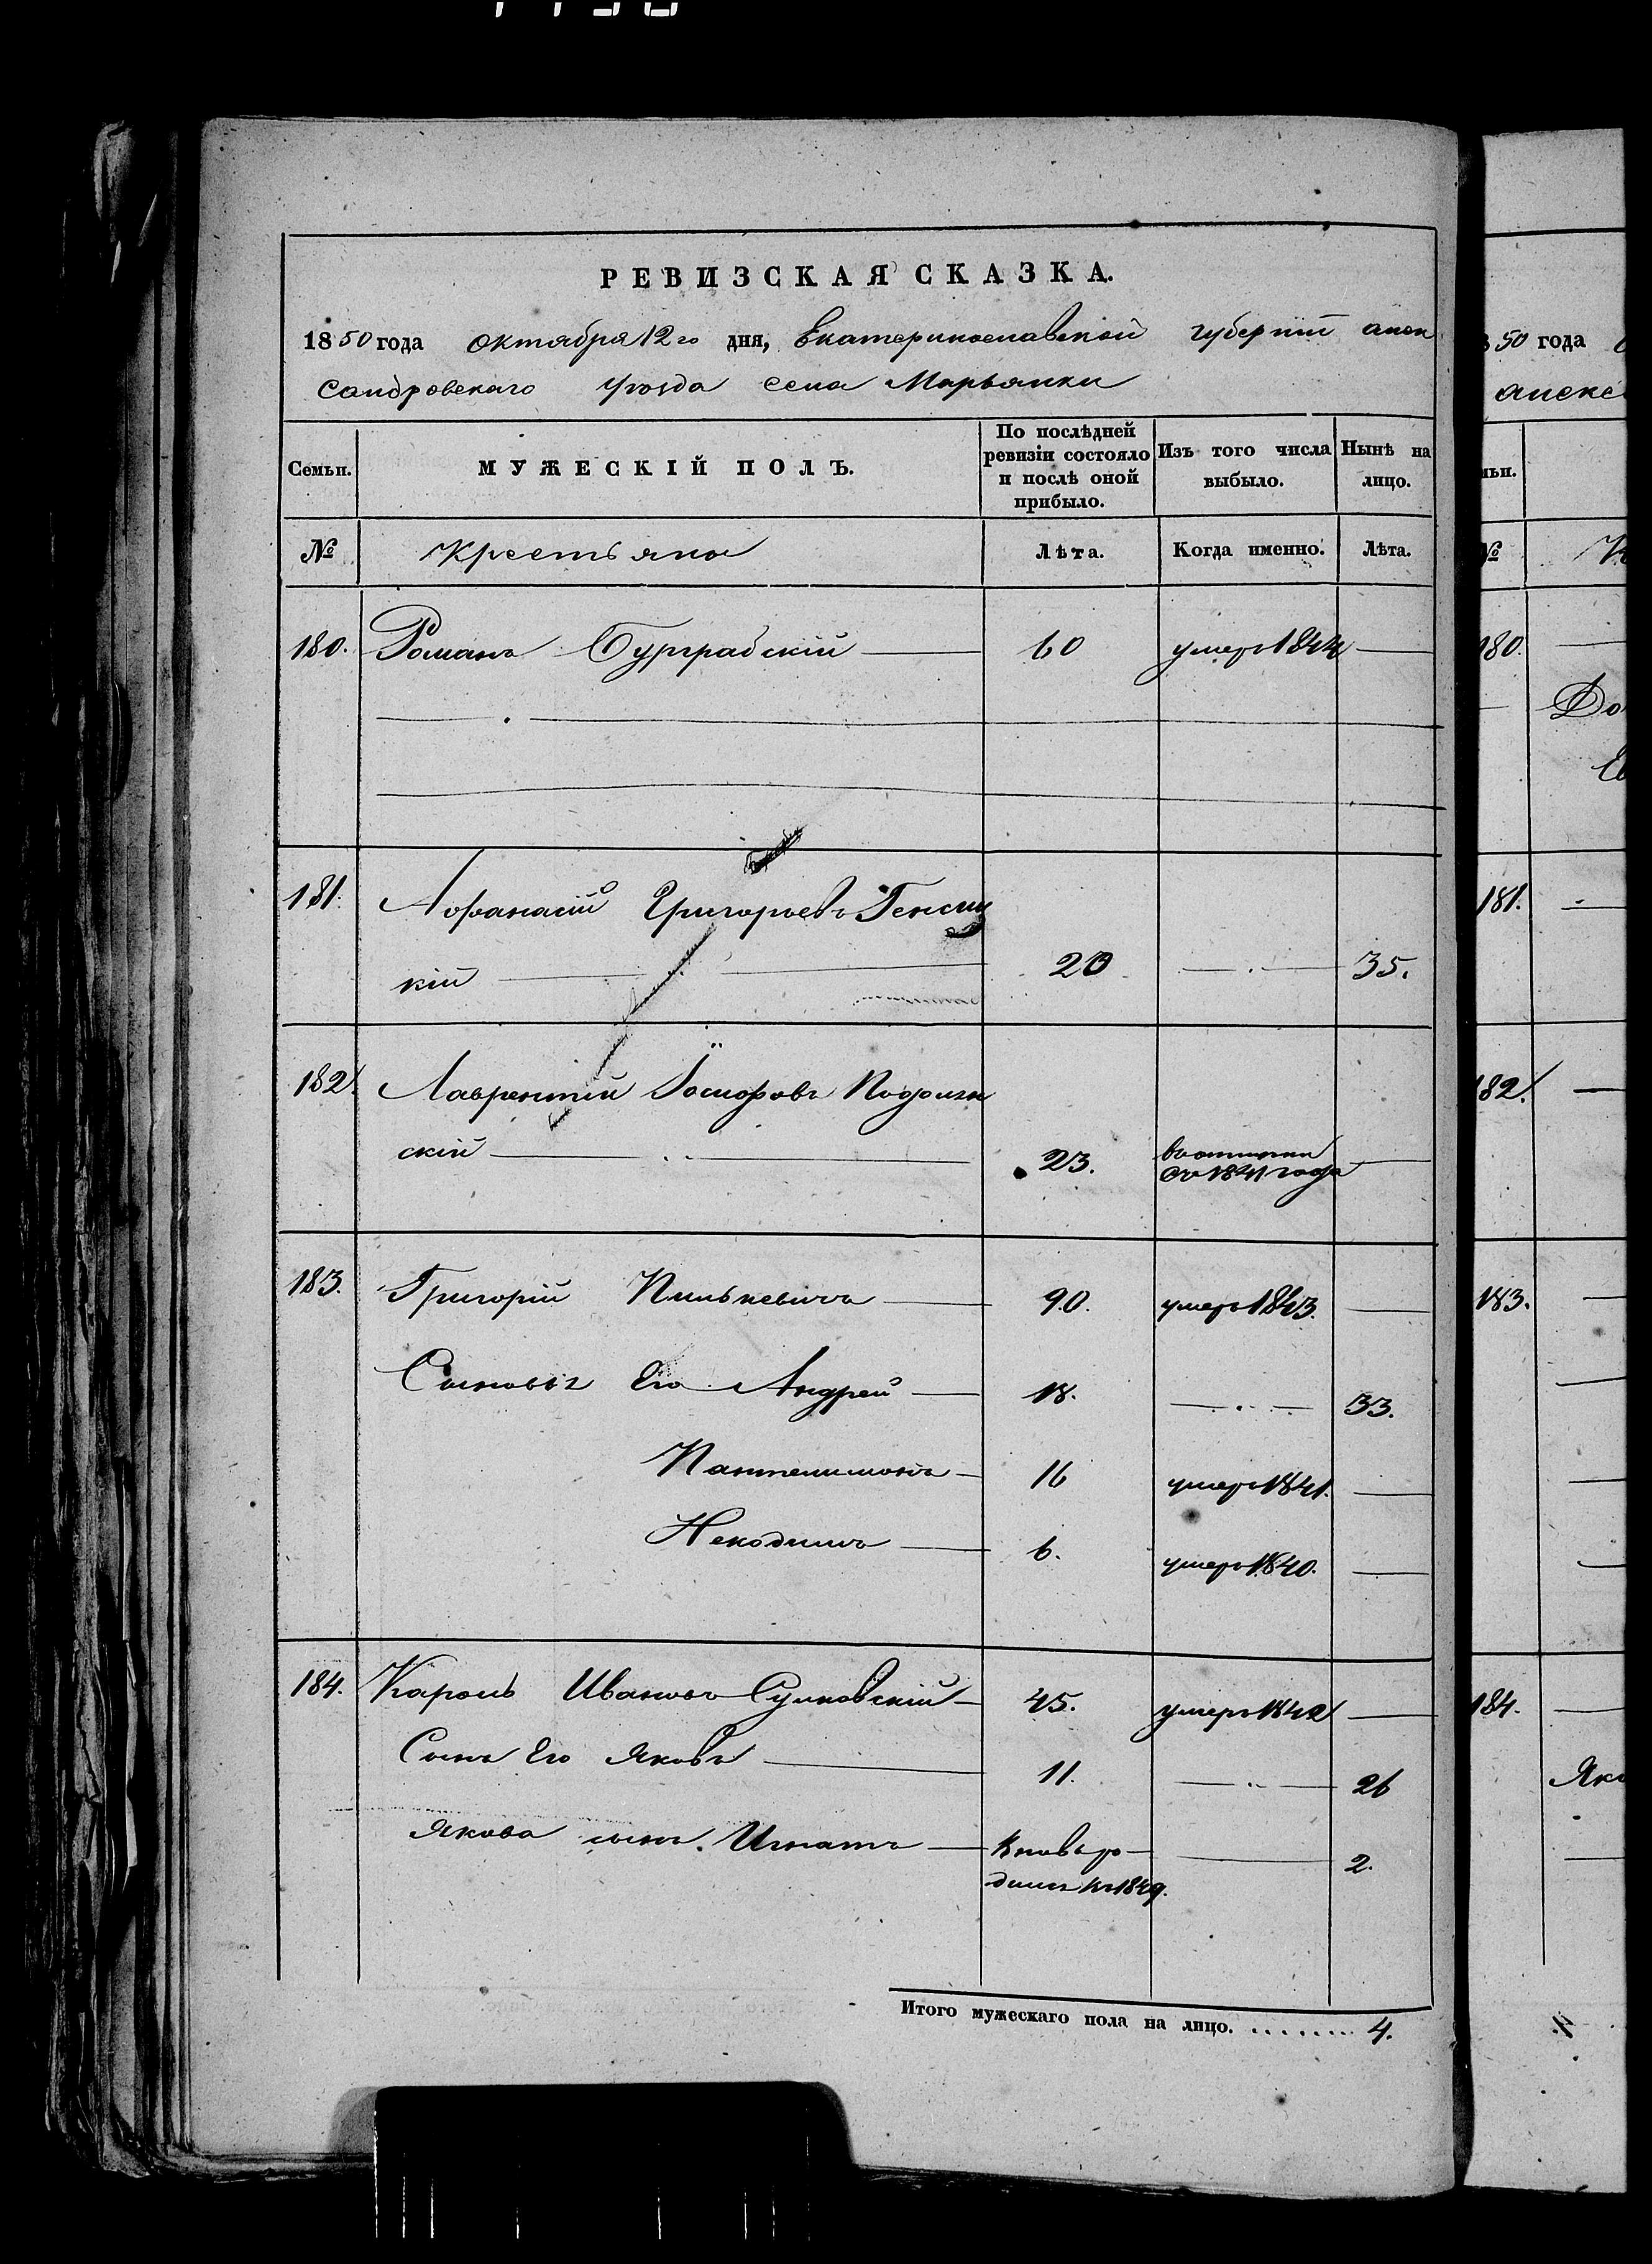 РЕВИЗСКАЯ СКАЗКА.
1850 года октября 12го дня, Екатеринославской губернiи алек
сандровскаго уѣзда села Марьянки
Семьи.
МУЖЕСКIЙ ПОЛЪ.
По послѣдней
ревизiи состояло
и послѣ оной
прибыло.
Изъ того числа
выбыло.
Нынѣ на
лицо.
№ Крестьяне Лѣта. Когда именно. Лѣта.
180. Романъ Бурграбскiй 60 умеръ 1844
181. Афанасiй Григорьевъ Генсиц
кiй 20 35.
182. Лаврентiй Iосифовъ
скiй 23.
съ 1841 года
183. Григорiй Пилькевичъ 90. умеръ 1843.
Сыновья Его Андрей 18. 33.
Пантелимонъ 16 умеръ 1841.
Некодимъ 6. умеръ 1840.
184. Кароль Ивановъ Сулковскiй 45. умеръ 1842
Сынъ Его Яковъ 11. 26
Якова сынъ Игнатъ вновь ро-
дился въ 1849. 2.
Итого мужескаго пола на лицо. ........ 4.
50 года
алекс
ьи.
№
180.
До
181.
182.
183.
184.
Яко